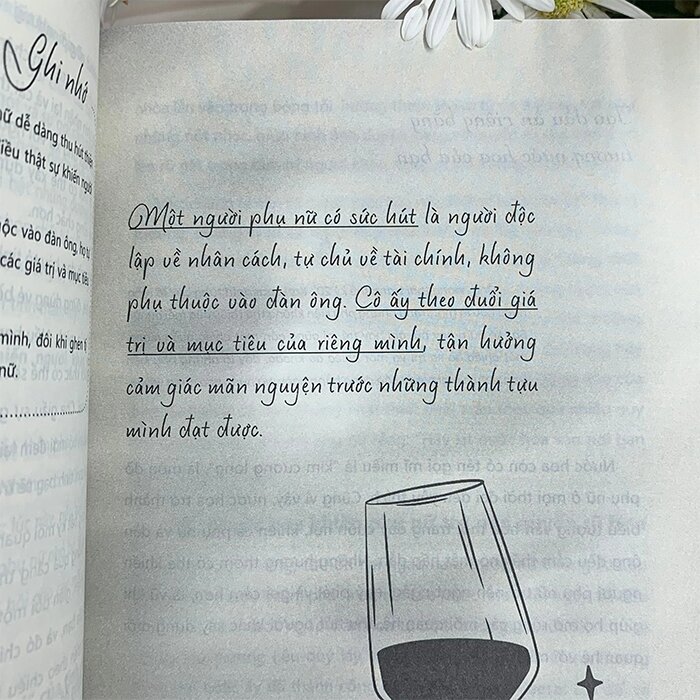 Ghi nhớ
ữ dễ dàng thu hút
iều thật sự khiến người
ộc vào đàn ông, họ
các giá trị và mục tiêu
mình, đôi khi ghen
nữ.
Một người phụ nữ có sức hút là người độc
lập về nhân cách, tự chủ về tài chính, không
phụ thuộc vào đàn ông. Cô ấy theo đuổi giá
trị và mục tiêu của riêng mình, tận hưởng
cảm giác mãn nguyện trước những thành tựu
mình đạt được.